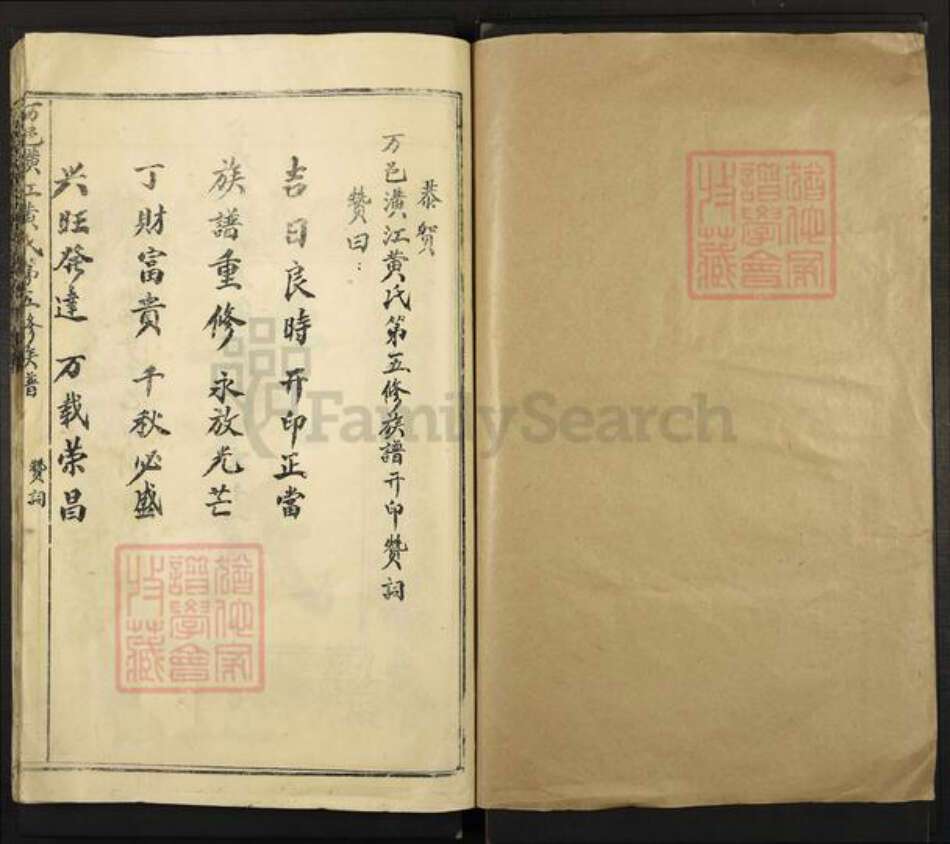 恭贺
万邑潢江黄氏第五修族譜开印赞詞
赞曰：
吉日良時 开印正當
族譜重修 永放光芒
丁財富貴 千秋必盛
兴旺發達 万载荣昌
万邑潢江黄氏第五修族譜
赞詞
FamilySearch
譜學會
收藏
譜學會
收藏